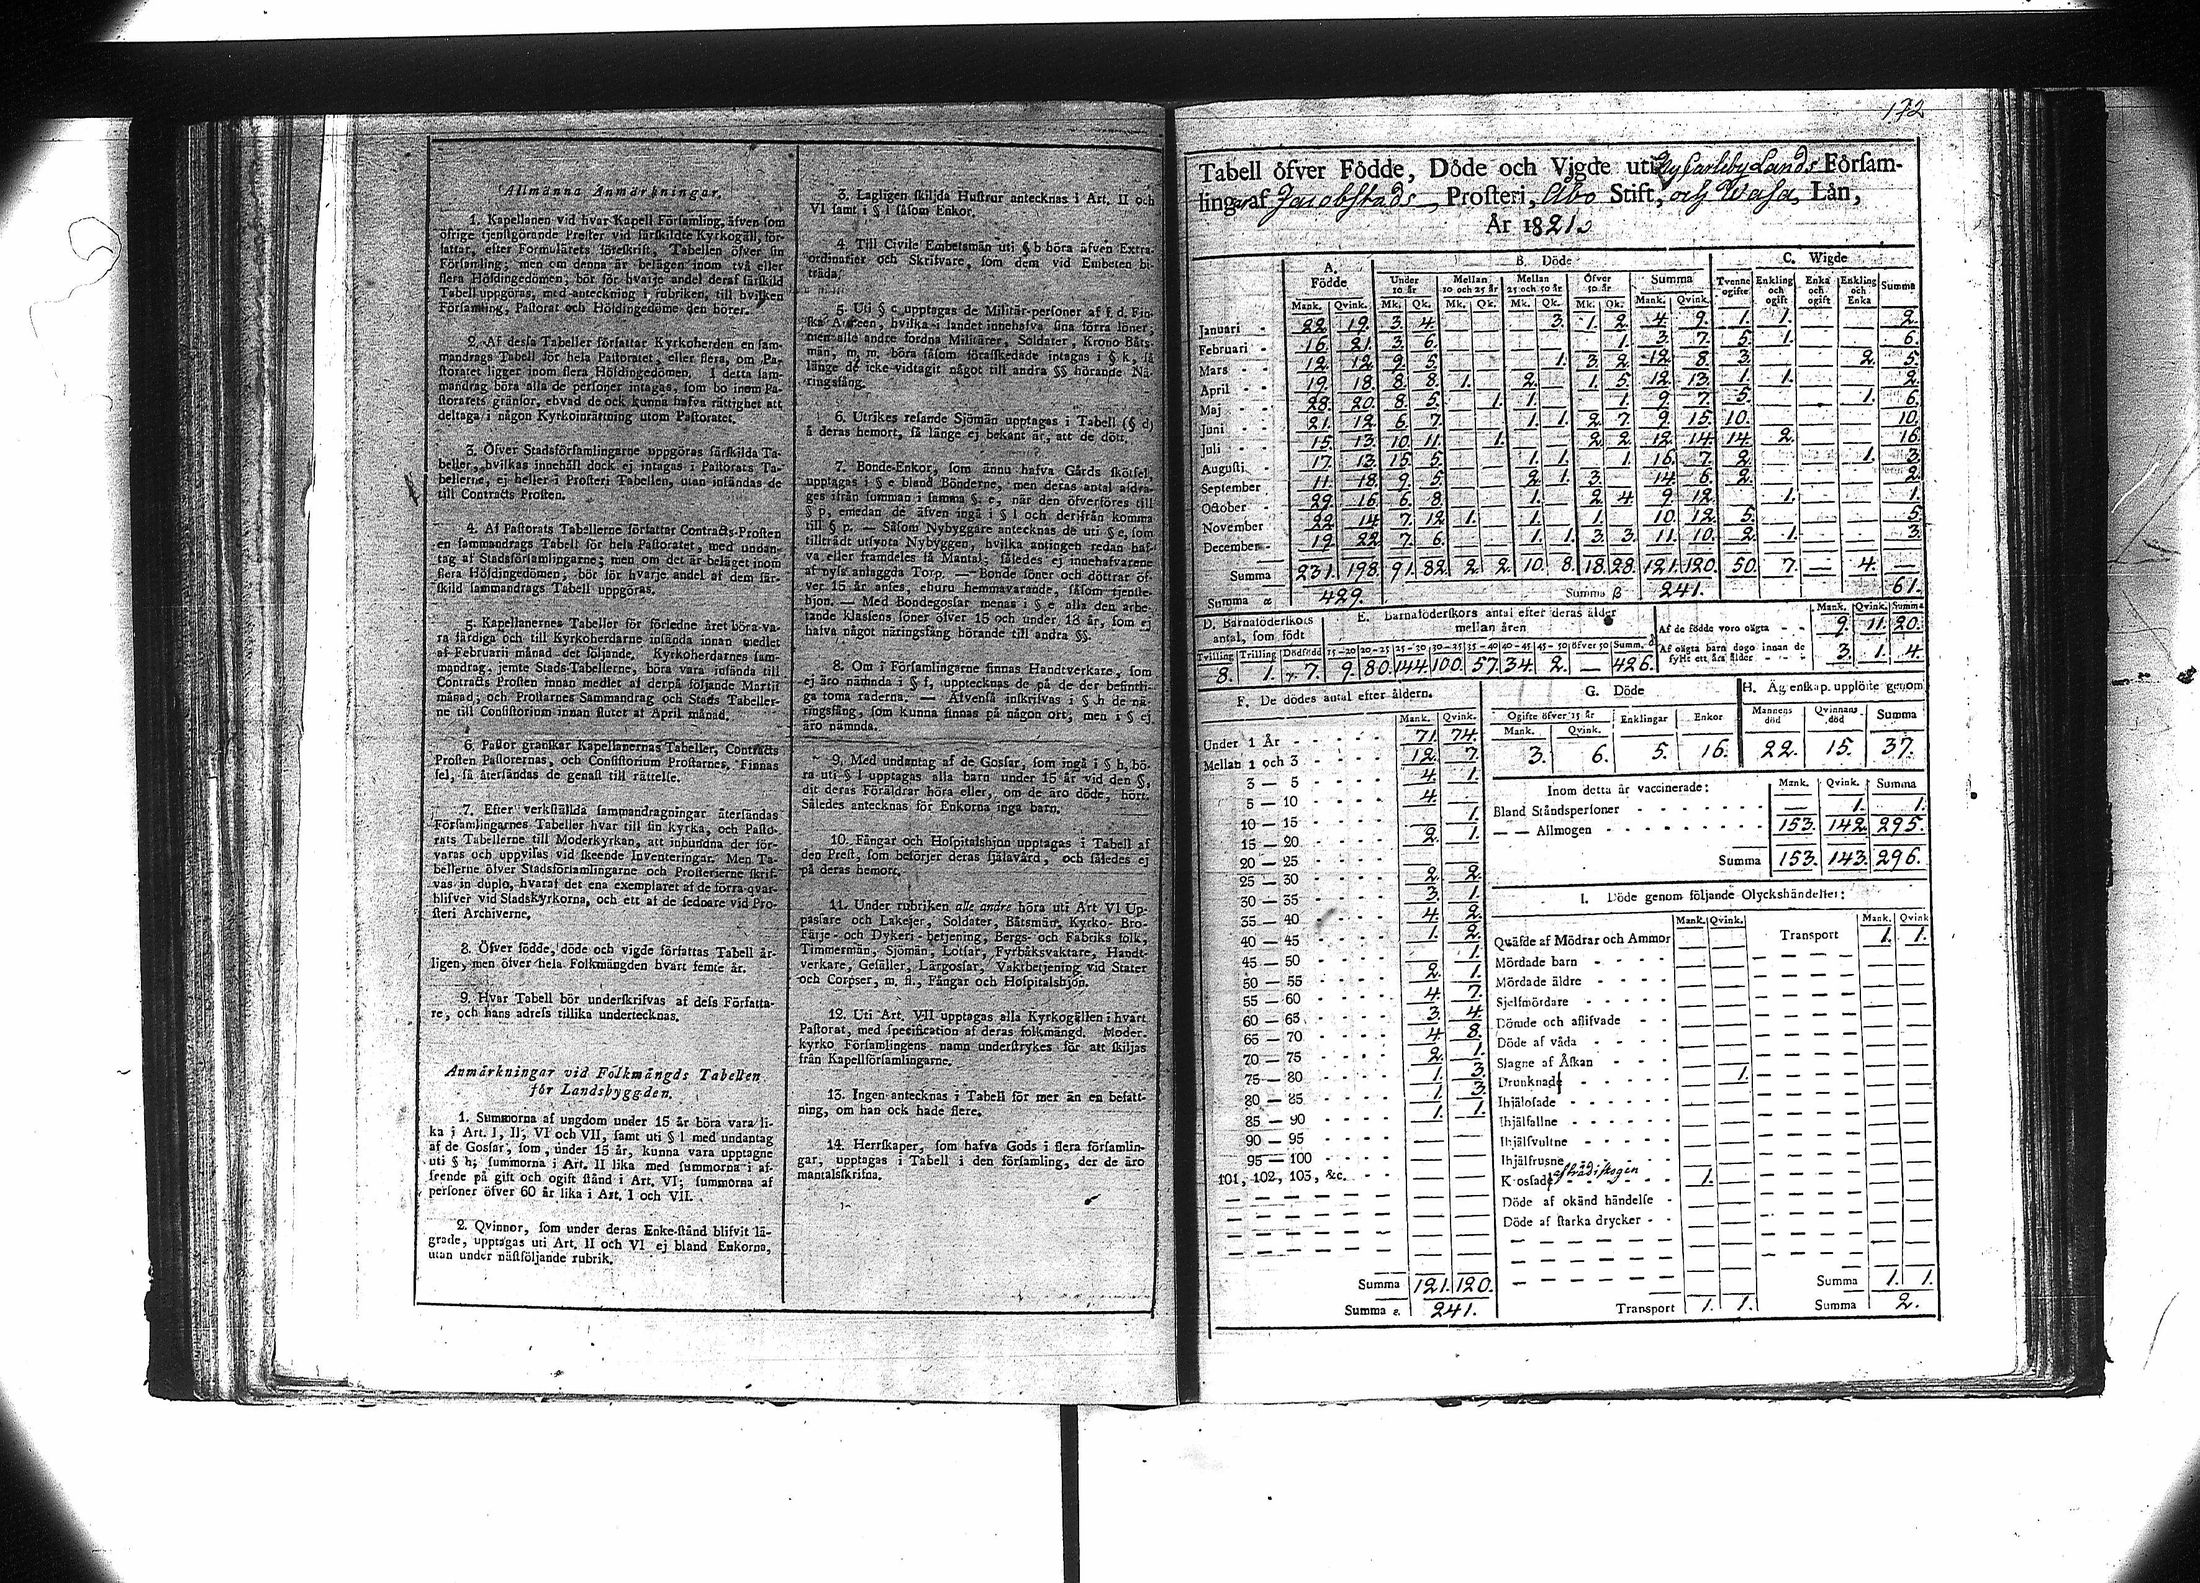 Allmänna Anmärkningar.
1. Kapellanen vid hvar Kapell Församling, äfven som
öfrige tjenstgörande Prester vid särskildte Kyrkogäll, för-
fattar, efter Formulärets föreskrift, Tabellen öfver sin
Församling; men om denna är belägen inom två eller
flera Höfdingedömen, bör för hvarje andel deraf särskild
Tabell uppgöras, med anteckning i rubriken, till hvilken
Församling, Pastorat och Höfdingedöme den hörer.
2. Af dessa Tabeller författar Kyrkoherden en sam-
mandrags Tabell för hela Pastoratet, eller flera, om Pa-
storatet ligger inom flera Höfdingedömen. I detta sam-
mandrag böra alla de personer intagas, som bo inom Pa-
storatets gränsor, ehvad de ock kunna hafva rättighet att
deltaga i någon Kyrkoinrättning utom Pastoratet.
3. Öfver Stadsförsamlingarne uppgöras särskilda Ta-
beller, hvilkas innehåll dock ej intagas i Pastorats Ta-
bellerne, ej heller i Prosteri Tabellen, utan insändas de
till Contracts Prosten.
4. Af Pastorats Tabellerne författar Contracts-Prosten
en sammandrags Tabell för hela Pastoratet, med undan-
tag af Stadsförsamlingarne; men om det är beläget inom
flera Höfdingedömen, bör för hvarje andel af dem sär-
skild sammandrags Tabell uppgöras.
5. Kapellanernes Tabeller för förledne året böra va-
ra färdiga och till Kyrkoherdarne insända innan medlet
af Februarii månad det följande. Kyrkoherdarnes sam-
mandrag, jemte Stads-Tabellerne, böra vara insända till
Contracts Prosten innan medlet af derpå följande Martii
månad, och Prostarnes Sammandrag och Stads Tabeller-
ne till Consistorium innan slutet af April månad.
6. Pastor granskar Kapellanernas Tabeller, Contracts
Prosten Pastorernas, och Consistorium Prostarnes. Finnas
fel, så återsändas de genast till rättelse.
7. Efter verkställda sammandragningar återsändas
Församlingarnes Tabeller hvar till sin kyrka, och Pasto-
rats Tabellerne till Moderkyrkan, att inbundna der för-
varas och uppvisas vid skeende Inventeringar. Men Ta-
bellerne öfver Stadsförsamlingarne och Prosterierne skrif-
vas in duplo, hvaraf det ena exemplaret af de förra qvar-
blifver vid Stadskyrkorna, och ett af de sednare vid Pro-
steri Archiverne.
8. Öfver födde, döde och vigde författas Tabell år-
ligen, men öfver hela Folkmängden hvart femte år.
9. Hvar Tabell bör underskrifvas af dess Författa-
re, och hans adress tillika undertecknas.
Anmärkningar vid Folkmängds Tabellen
för Landsbygden.
1. Summorna af ungdom under 15 år böra vara li-
ka i Art. I, II, VI och VII, samt uti § l med undantag
af de Gossar, som, under 15 år, kunna vara upptagne
uti § h; summorna i Art. II lika med summorna i af-
seende på gift och ogift stånd i Art. VI; summorna af
personer öfver 60 år lika i Art. I och VII.
2. Qvinnor, som under deras Enke-stånd blifvit lä-
grade, upptagas uti Art. II och VI ej bland Enkorna,
utan under nästföljande rubrik.
3. Lagligen skiljda Hustrur antecknas i Art. II och
VI samt i § l såsom Enkor.
4. Till Civile Embetsmän uti § b höra äfven Extra-
ordinarier och Skrifvare, som dem vid Embeten bi-
träda.
5. Uti § c upptagas de Militär-personer af f. d. Fin-
ska Arméen, hvilka i landet innehafva sina förra löner;
men alle andre fordna Militärer, Soldater, Krono Båts-
män, m. m. böra såsom förafskedade intagas i § k, så
länge de icke vidtagit något till andra §§ hörande Nä-
ringsfång.
6. Utrikes resande Sjömän upptagas i Tabell (§ d)
å deras hemort, så länge ej bekant är, att de dött.
7. Bonde-Enkor, som ännu hafva Gårds skötsel,
upptagas i § e bland Bönderne, men deras antal aldra-
ges ifrån summan i samma § e, när den öfverföres till
§ p, emedan de äfven ingå i § l och derifrån komma
till § p. — Såsom Nybyggare antecknas de uti § e, som
tillträdt utsynta Nybyggen, hvilka antingen redan haf-
va eller framdeles få Mantal; således ej innehafvarene
af nyss anlaggda Torp. — Bonde söner och döttrar öf-
ver 15 år anses, ehuru hemmavarande, såsom tjenste-
hjon. — Med Bondegossar menas i § e alla den arbe-
tande klassens söner öfver 15 och under 18 år, som ej
hafva något näringsfång hörande till andra §§.
8. Om i Församlingarne finnas Handtverkare, som
ej äro nämnda i § f, upptecknas de på de der befintli-
ga toma raderna. — Äfvenså inskrifvas i § h de nä-
ringsfång, som kunna finnas på någon ort, men i § ej
äro nämnda.
9. Med undantag af de Gossar, som ingå i § h, bö-
ra uti § l upptagas alla barn under 15 år vid den §,
dit deras Föräldrar höra eller, om de äro döde, hört.
Således antecknas för Enkorna inga barn.
10. Fångar och Hospitalshjon upptagas i Tabell af
den Prest, som besörjer deras själavård, och således ej
på deras hemort.
11. Under rubriken alle andre höra uti Art VI Up-
passare och Lakejer, Soldater, Båtsmän, Kyrko- Bro-
Färje- och Dykeri- betjening, Bergs- och Fabriks folk,
Timmermän, Sjömän, Lotsar, Fyrbåksvaktare, Handt-
verkare, Gesäller, Lärgossar, Vaktbetjening vid Stater
och Corpser, m. fl., Fångar och Hospitalshjon.
12. Uti Art. VII upptagas alla Kyrkogällen i hvart
Pastorat, med specification af deras folkmängd. Moder-
kyrko Församlingens namn understrykes för att skiljas
från Kapellförsamlingarne.
13. Ingen antecknas i Tabell för mer än en befatt-
ning, om han ock hade flere.
14. Herrskaper, som hafva Gods i flera församlin-
gar, upptagas i Tabell i den församling, der de äro
mantalsskrifna.
172
Tabell öfver Födde, Döde och Vigde uti Ny Carleby Lands Församling
af Jacobstads Prosteri, Åbo Stift, och Wasa Län,
År 1821.
A. Födde B. Döde C. Wigde
Under 10 år Mellan 10 och 25 år Mellan 25 och 50 år Öfver 50 år Summa Tvenne ogifte Enkling och ogift Enka och ogift Enkling och Enka Summa
Mank. Qvink. Mk. Qk. Mk. Qk. Mk. Qk. Mk. Qk. Mank. Qvink.
Januari 22. 19. 3. 4. — — — 3. 1. 2. 4. 9. 1. 1. — — 2.
Februari 16. 21. 3. 6. — — — — — 1. 3. 7. 5. 1. — — 6.
Mars 12. 12. 9. 5. — — — 1. 3. 2. 12. 8. 3. — — 2. 5.
April 19. 18. 8. 8. 1. — 2. — 1. 5. 12. 13. 1. 1. — — 2.
Maj 28. 20. 8. 5. — 1. 1. — — 1. 9. 7. 5. — — 1. 6.
Juni 21. 12. 6. 7. — — 1. 1. 2. 7. 9. 15. 10. — — — 10.
Juli 15. 13. 10. 11. — 1. — — 2. 2. 12. 14. 14. 2. — — 16.
Augusti 17. 13. 15. 5. — — 1. 1. — 1. 16. 7. 2. — — 1. 3.
September 11. 18. 9. 5. — — 2. 1. 3. — 14. 6. 2. — — — 2.
October 29. 16. 6. 8. — — 1. — 2. 4. 9. 12. — 1. — — 1.
November 22. 14. 7. 12. 1. — 1. — 1. — 10. 12. 5. — — — 5.
December 19. 22. 7. 6. — — 1. 1. 3. 3. 11. 10. 2. 1. — — 3.
Summa 231. 198. 91. 82. 2. 2. 10. 8. 18. 28. 121. 120. 50. 7. — 4. —
Summa α 429. Summa β 241. 61.
D. Barnaföderskors antal, som födt
Tvilling Trilling Dödfödd
8. 1. 7.
E. Barnaföderskors antal efter deras ålder mellan åren
15—20 20—25 25—30 30—35 35—40 40—45 45—50 öfver 50 Summ. δ
9. 80. 144. 100. 57. 34. 2. — 426.
Mank. Qvink. Summa
Af de födde voro oägta 9. 11. 20.
Af oägta barn dogo innan de fyllt ett års ålder 3. 1. 4.
F. De dödes antal efter åldern.
Mank. Qvink.
Under 1 År 71. 74.
Mellan 1 och 3 12. 7.
3 — 5 4. 1.
5 — 10 4. —
10 — 15 — 1.
15 — 20 2. 1.
20 — 25 — —
25 — 30 2. 2.
30 — 35 3. 1.
35 — 40 4. 2.
40 — 45 1. 2.
45 — 50 — 1.
50 — 55 2. 1.
55 — 60 4. 7.
60 — 65 3. 4.
65 — 70 4. 8.
70 — 75 2. 1.
75 — 80 1. 3.
80 — 85 1. 3.
85 — 90 1. 1.
90 — 95 — —
95 — 100 — —
101, 102, 103, &c. — —
Summa 121. 120.
Summa ε. 241.
G. Döde
Ogifte öfver 15 år Enklingar Enkor
Mank. Qvink.
3. 6. 5. 16.
H. Ägtenskap upplöste genom
Mannens död Qvinnans död Summa
22. 15. 37.
Inom detta år vaccinerade: Mank. Qvink. Summa
Bland Ståndspersoner — 1. 1.
— — Allmogen 153. 142. 295.
Summa 153. 143. 296.
I. Döde genom följande Olyckshändelser:
Mank. Qvink. Mank. Qvink
Qväfde af Mödrar och Ammor — — Transport 1. 1.
Mördade barn
Mördade äldre
Sjelfmördare
Dömde och aflifvade
Döde af våda
Slagne af Åskan
Drunknade — 1.
Ihjälosade
Ihjälfallne
Ihjälsvultne
Ihjälfrusne
Krossade af träd i skogen 1. —
Döde af okänd händelse
Döde af starka drycker
Summa 1. 1.
Transport 1. 1. Summa 2.